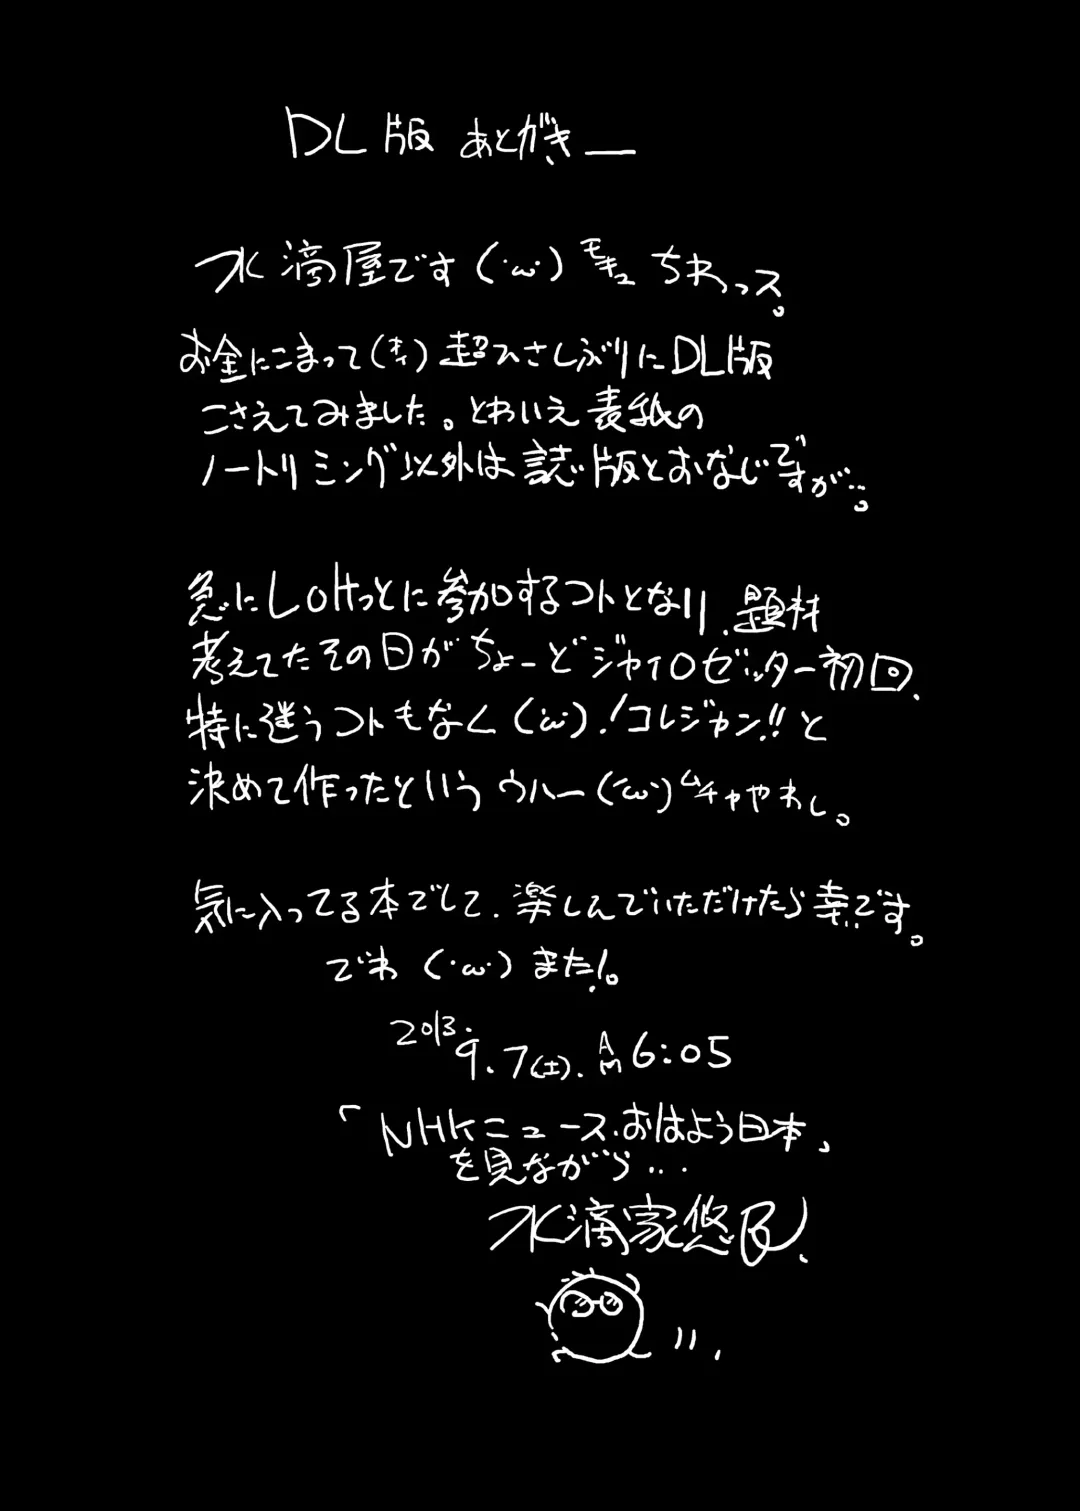 DL版 あとがき―
水滴屋です(・ω・)モキュ ちわっス。
お金にこまって(キリ) 超ひさしぶりにDL版
こさえてみました。とわいえ表紙の
ノートリミング以外は誌版とおなじですが…。
急にLoHっとに参加するコトとなり、題材
考えてたその日がちょーどジャイロゼッター初回、
特に迷うコトもなく(・ω・)!コレジャン!!と
決めて作ったという ウハー(・ω・)ムチャやわし。
気に入ってる本でして、楽しんでいただけたら幸いです。
でわ (・ω・) また!。
2013.9.7(土). AM6:05
「NHKニュース.おはよう日本」
を見ながら…
水滴家悠